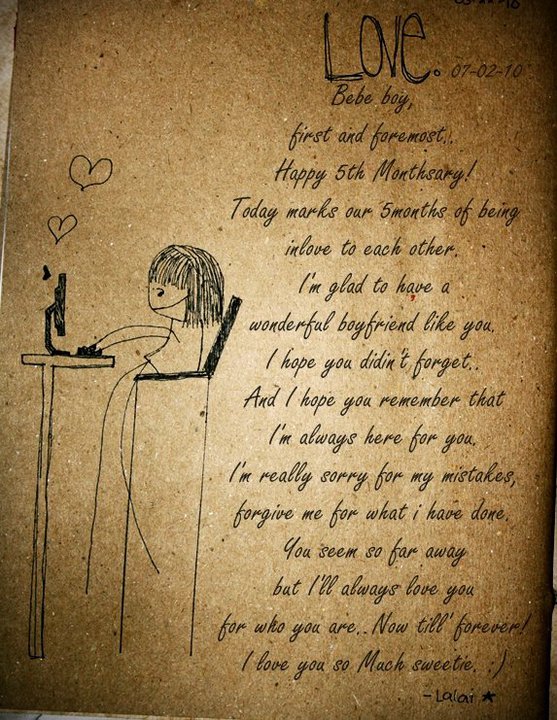 LOVE. 07-02-10
Bebe boy,
first and foremost..
Happy 5th Monthsary!
Today marks our 5months of being
inlove to each other.
I'm glad to have a
wonderful boyfriend like you.
I hope you didin't forget..
And I hope you remember that
I'm always here for you.
I'm really sorry for my mistakes,
forgive me for what i have done.
You seem so far away
but I'll always love you
for who you are.. Now till' forever!
I love you so Much sweetie. :)
-Lalai ★